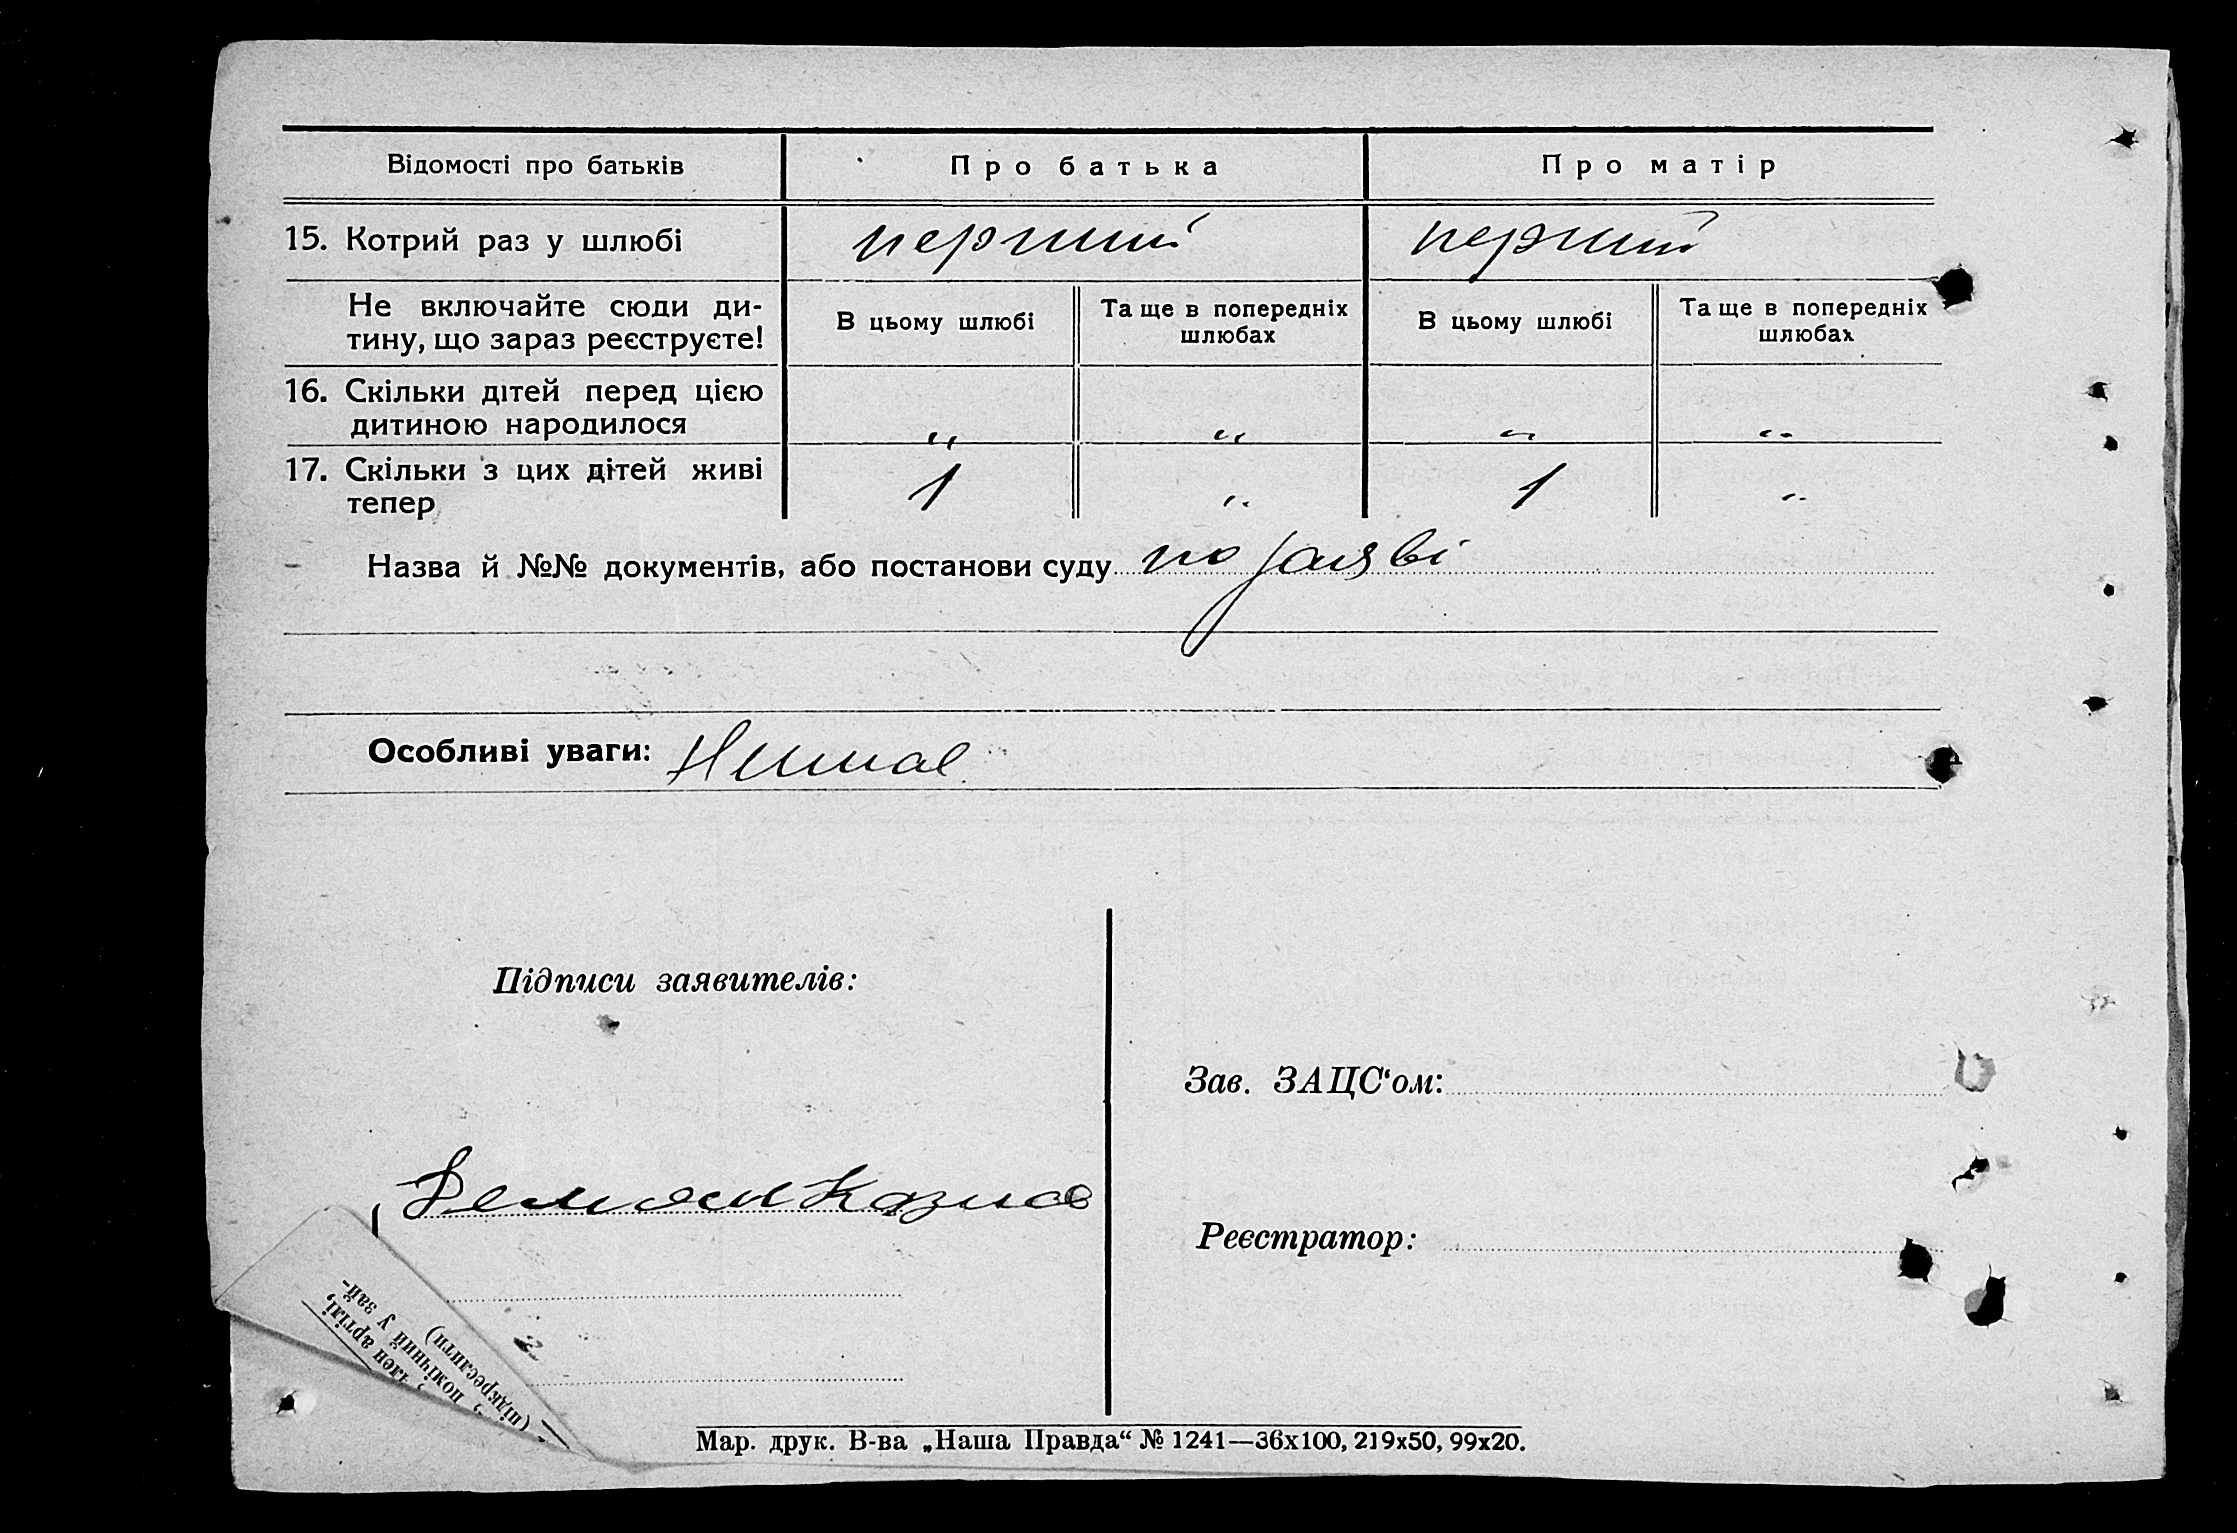 Відомості про батьків Про батька Про матір
15. Котрий раз у шлюбі перший перший
Не включайте сюди ди-
тину, що зараз реєструєте!
В цьому шлюбі Та ще в попередніх
шлюбах
В цьому шлюбі Та ще в попередніх
шлюбах
16. Скільки дітей перед цією
дитиною народилося „ „ „ „
17. Скільки з цих дітей живі
тепер 1 „ 1 „
Назва й №№ документів, або постанови суду по заяві
Особливі уваги: Немає
Підписи заявителів:
Зав. ЗАЦС‘ом:
Реєстратор:
член артілі,
помічний у зай-
(підкреслити)
Мар. друк. В-ва „Наша Правда“ № 1241—36х100, 219х50, 99х20.